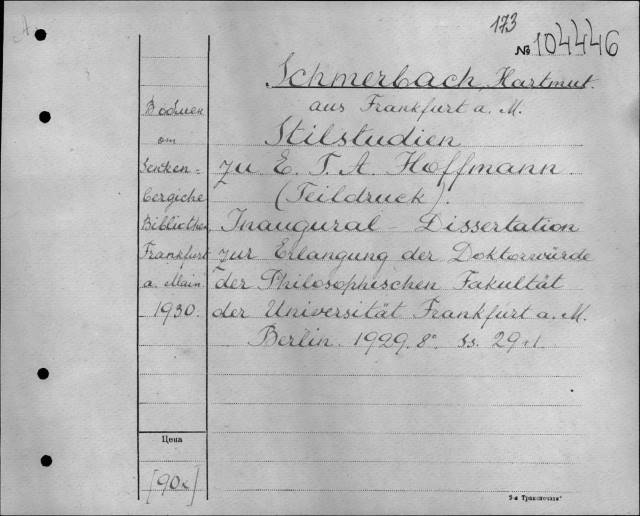 173
№ 104446
Schmerbach, Hartmut.
aus Frankfurt a. M.
Stilstudien
zu E. T. A. Hoffmann
(Teildruck).
Inaugural - Dissertation
zur Erlangung der Doktorwürde
der Philosophischen Fakultät
der Universität Frankfurt a. M.
Berlin. 1929. 8° Ss. 29+1.
от
Senken-
bergiche
Bibliothek
Frankfurt
a. Main
1930.
Цена
[90к]